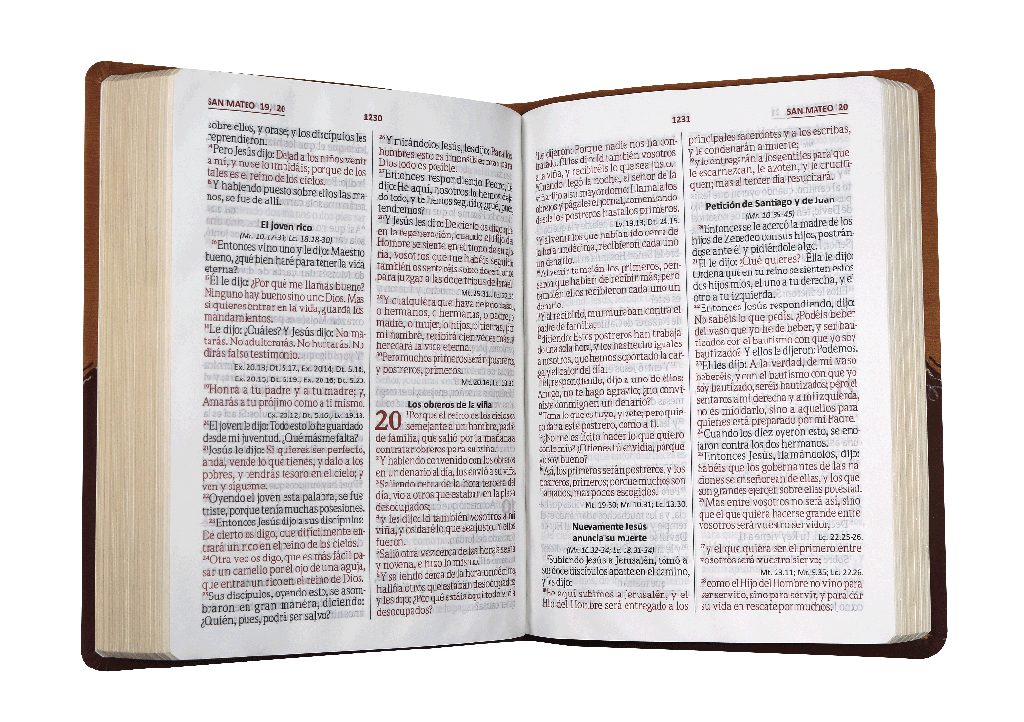 SAN MATEO 19, 20
1230
sobre ellos, y orase; y los discípulos les
reprendieron.
14Pero Jesús dijo: Dejad a los niños venir
a mí, y no se lo impidáis; porque de los
tales es el reino de los cielos.
15Y habiendo puesto sobre ellos las ma-
nos, se fue de allí.
El joven rico
(Mr. 10.17-31; Lc. 18.18-30)
16Entonces vino uno y le dijo: Maestro
bueno, ¿qué bien haré para tener la vida
eterna?
17Él le dijo: ¿Por qué me llamas bueno?
Ninguno hay bueno sino uno: Dios. Mas
si quieres entrar en la vida, guarda los
mandamientos.
18Le dijo: ¿Cuáles? Y Jesús dijo: No ma-
tarás. No adulterarás. No hurtarás. No
dirás falso testimonio.
Ex. 20.13; Dt. 5.17, Ex. 20.14; Dt. 5.18,
Ex. 20.15; Dt. 5.19, Ex. 20.16; Dt. 5.20.
19Honra a tu padre y a tu madre; y,
Amarás a tu prójimo como a ti mismo.
Ex. 20.12; Dt. 5.16, Lv. 19.18.
20El joven le dijo: Todo esto lo he guardado
desde mi juventud. ¿Qué más me falta?
21Jesús le dijo: Si quieres ser perfecto,
anda, vende lo que tienes, y dalo a los
pobres, y tendrás tesoro en el cielo; y
ven y sígueme.
22Oyendo el joven esta palabra, se fue
triste, porque tenía muchas posesiones.
23Entonces Jesús dijo a sus discípulos:
De cierto os digo, que difícilmente en-
trará un rico en el reino de los cielos.
24Otra vez os digo, que es más fácil pa-
sar un camello por el ojo de una aguja,
que entrar un rico en el reino de Dios.
25Sus discípulos, oyendo esto, se asom-
braron en gran manera, diciendo:
¿Quién, pues, podrá ser salvo?
26Y mirándolos Jesús, les dijo: Para los
hombres esto es imposible; mas para
Dios todo es posible.
27Entonces respondiendo Pedro, le
dijo: He aquí, nosotros lo hemos deja-
do todo, y te hemos seguido; ¿qué, pues,
tendremos?
28Y Jesús les dijo: De cierto os digo que
en la regeneración, cuando el Hijo del
Hombre se siente en el trono de su glo-
ria, vosotros que me habéis seguido
también os sentaréis sobre doce tronos,
para juzgar a las doce tribus de Israel.
Mt. 25.31, Lc. 22.30
29Y cualquiera que haya dejado casas,
o hermanos, o hermanas, o padre, o
madre, o mujer, o hijos, o tierras, por
mi nombre, recibirá cien veces más, y
heredará la vida eterna.
30Pero muchos primeros serán postreros,
y postreros, primeros.
Mt. 20.16; Lc. 13.30
Los obreros de la viña
20 1Porque el reino de los cielos es
semejante a un hombre, padre
de familia, que salió por la mañana a
contratar obreros para su viña.
2Y habiendo convenido con los obreros
en un denario al día, los envió a su viña.
3Saliendo cerca de la hora tercera del
día, vio a otros que estaban en la plaza
desocupados;
4y les dijo: Id también vosotros a mi
viña, y os daré lo que sea justo. Y ellos
fueron.
5Salió otra vez cerca de las horas sexta
y novena, e hizo lo mismo.
6Y saliendo cerca de la hora undécima,
halló a otros que estaban desocupados;
y les dijo: ¿Por qué estáis aquí todo el día
desocupados?
1231
SAN MATEO 20
7Le dijeron: Porque nadie nos ha con-
tratado. Él les dijo: Id también vosotros
a la viña, y recibiréis lo que sea justo.
8Cuando llegó la noche, el señor de la
viña dijo a su mayordomo: Llama a los
obreros y págales el jornal, comenzando
desde los postreros hasta los primeros.
Lv. 19.13; Dt. 24.15.
9Y al venir los que habían ido cerca de
la hora undécima, recibieron cada uno
un denario.
10Al venir también los primeros, pen-
saron que habían de recibir más; pero
también ellos recibieron cada uno un
denario.
11Y al recibirlo, murmuraban contra el
padre de familia,
12diciendo: Estos postreros han trabaja-
do una sola hora, y los has hecho iguales
a nosotros, que hemos soportado la car-
ga y el calor del día.
13Él, respondiendo, dijo a uno de ellos:
Amigo, no te hago agravio; ¿no convi-
niste conmigo en un denario?
14Toma lo que es tuyo, y vete; pero quie-
ro dar a este postrero, como a ti.
15¿No me es lícito hacer lo que quiero
con lo mío? ¿O tienes tú envidia, porque
yo soy bueno?
16Así, los primeros serán postreros, y los
postreros, primeros; porque muchos son
llamados, mas pocos escogidos.
Mt. 19.30; Mr. 10.31; Lc. 13.30.
Nuevamente Jesús
anuncia su muerte
(Mr. 10.32-34; Lc. 18.31-34)
17Subiendo Jesús a Jerusalén, tomó a
sus doce discípulos aparte en el camino,
y les dijo:
18He aquí subimos a Jerusalén, y el
Hijo del Hombre será entregado a los
principales sacerdotes y a los escribas,
y le condenarán a muerte;
19y le entregarán a los gentiles para que
le escarnezcan, le azoten, y le crucifi-
quen; mas al tercer día resucitará.
Petición de Santiago y de Juan
(Mr. 10.35-45)
20Entonces se le acercó la madre de los
hijos de Zebedeo con sus hijos, postrán-
dose ante él y pidiéndole algo.
21Él le dijo: ¿Qué quieres? Ella le dijo:
Ordena que en tu reino se sienten estos
dos hijos míos, el uno a tu derecha, y el
otro a tu izquierda.
22Entonces Jesús respondiendo, dijo:
No sabéis lo que pedís. ¿Podéis beber
del vaso que yo he de beber, y ser bau-
tizados con el bautismo con que yo soy
bautizado? Y ellos le dijeron: Podemos.
23Él les dijo: A la verdad, de mi vaso
beberéis, y con el bautismo con que yo
soy bautizado, seréis bautizados; pero el
sentaros a mi derecha y a mi izquierda,
no es mío darlo, sino a aquellos para
quienes está preparado por mi Padre.
24Cuando los diez oyeron esto, se eno-
jaron contra los dos hermanos.
25Entonces Jesús, llamándolos, dijo:
Sabéis que los gobernantes de las na-
ciones se enseñorean de ellas, y los que
son grandes ejercen sobre ellas potestad.
26Mas entre vosotros no será así, sino
que el que quiera hacerse grande entre
vosotros será vuestro servidor,
Lc. 22.25-26.
27y el que quiera ser el primero entre
vosotros será vuestro siervo;
Mt. 23.11; Mr. 9.35; Lc. 22.26.
28como el Hijo del Hombre no vino para
ser servido, sino para servir, y para dar
su vida en rescate por muchos.